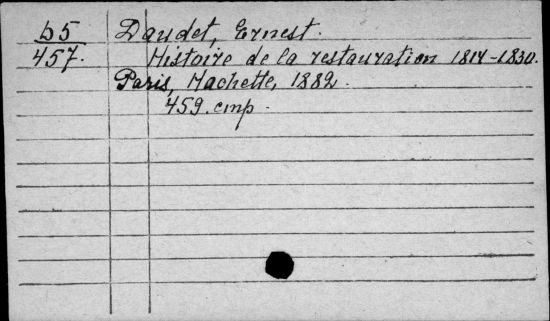 b5 Daudet, Ernest.
457. Histoire de la restauration 1814-1830.
Paris, Hachette, 1882.
459. cmp.